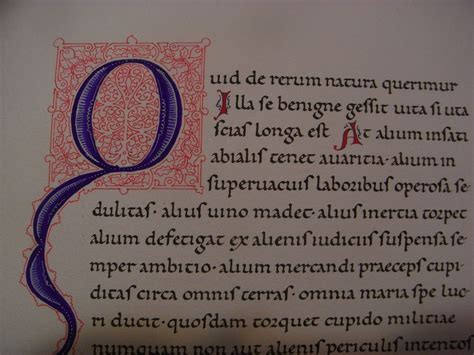 Quid de rerum natura querimur
Illa se benigne gessit uita si uta
scias longa est At alium insati
abialis tenet auaritia · alium in
superuacuis laboribus operosa se
dulitas · alius uino madet · alius inertia torpet
alium defetigat ex alienis iudiciis suspensa se
mper ambitio · alium mercandi praeceps cupi
ditas circa omnis terras · omnia maria spe luc
ri ducit · quosdam torquet cupido militiae
numquam non aut alienis periculis intentos